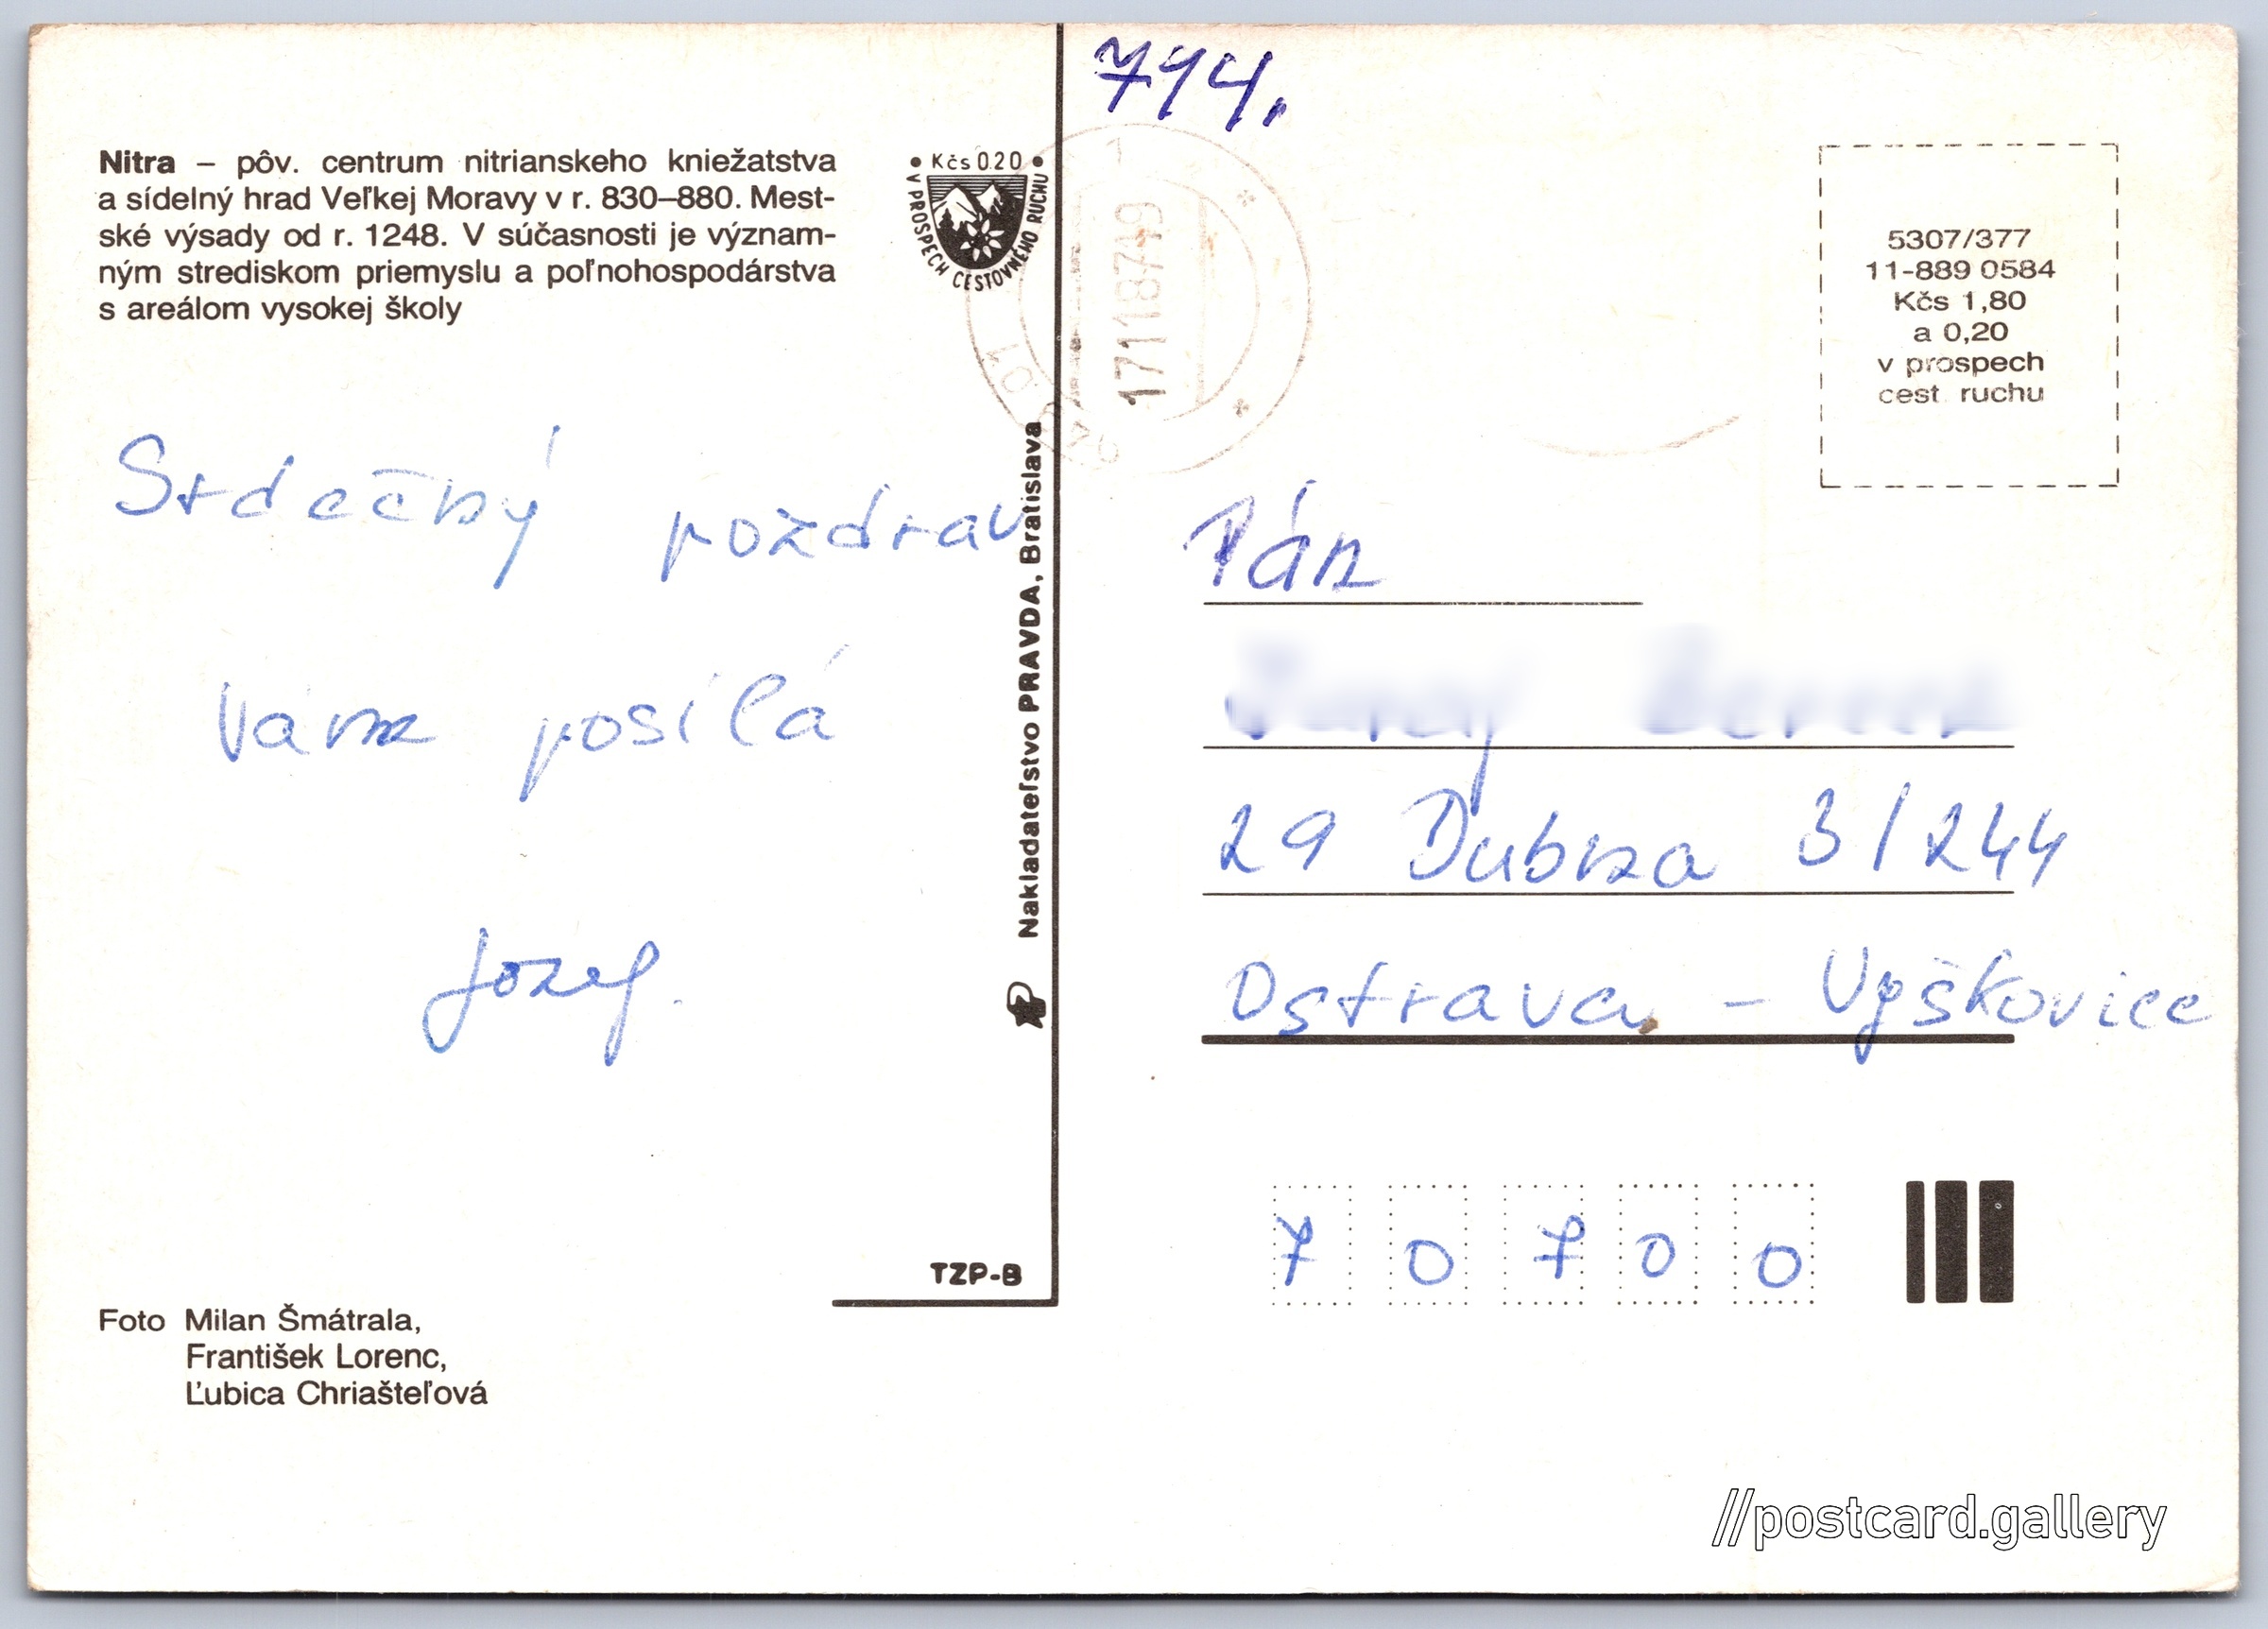 794.
Nitra – pôv. centrum nitrianskeho kniežatstva
a sídelný hrad Veľkej Moravy v r. 830–880. Mest-
ské výsady od r. 1248. V súčasnosti je význam-
ným strediskom priemyslu a poľnohospodárstva
s areálom vysokej školy
• Kčs 0.20 •
V PROSPECH CESTOVNÉHO RUCHU
171187-19
5307/377
11-889 0584
Kčs 1,80
a 0,20
v prospech
cest. ruchu
Srdečný pozdrav
Vám posílá
Jozef.
Nakladateľstvo PRAVDA, Bratislava
TZP-B
Foto Milan Šmátrala,
František Lorenc,
Ľubica Chriašteľová
Pán
29 Dubna 3/244
Ostrava – Vyškovice
70700
//postcard.gallery